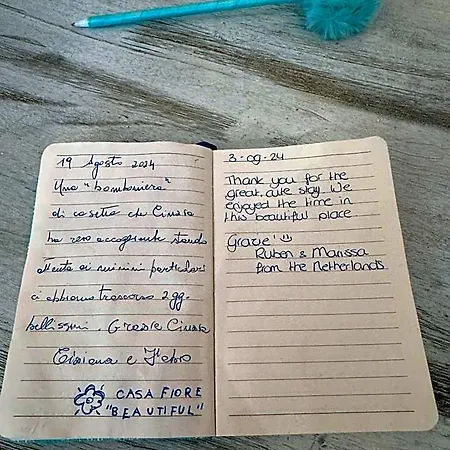 19 Agosto 2024
Una "bomboniera"
di casetta che Cinzia
ha reso accogliente stando
attenta ai minimi particolari
ci abbiamo trascorso 2 gg.
bellissimi. Grazie Cinzia
Tiziana e
CASA FIORE
"BEAUTIFUL"
3-09-24
Thank you for the
great, cute stay. We
enjoyed the time in
this beautiful place
Grazie!
Ruben & Marissa
from the Netherlands